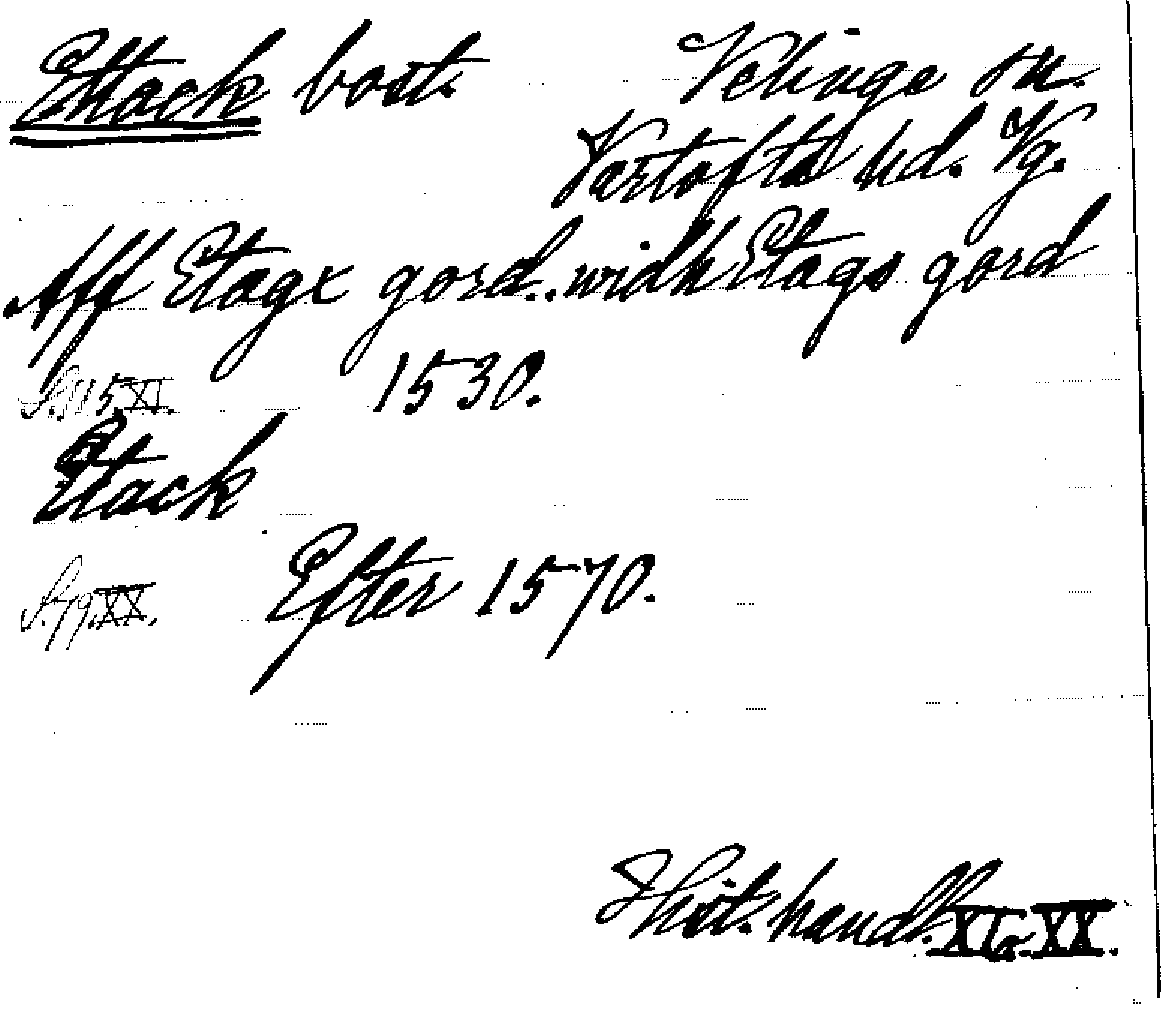 Ettack bost. Velinge sn.
Vartofta hd. Vg.
Aff Etagx gord..widh Etags gord
S. 115 XI. 1530.
Etack
S. 79 XX. Efter 1570.
Hist. handl. XI o. XX.